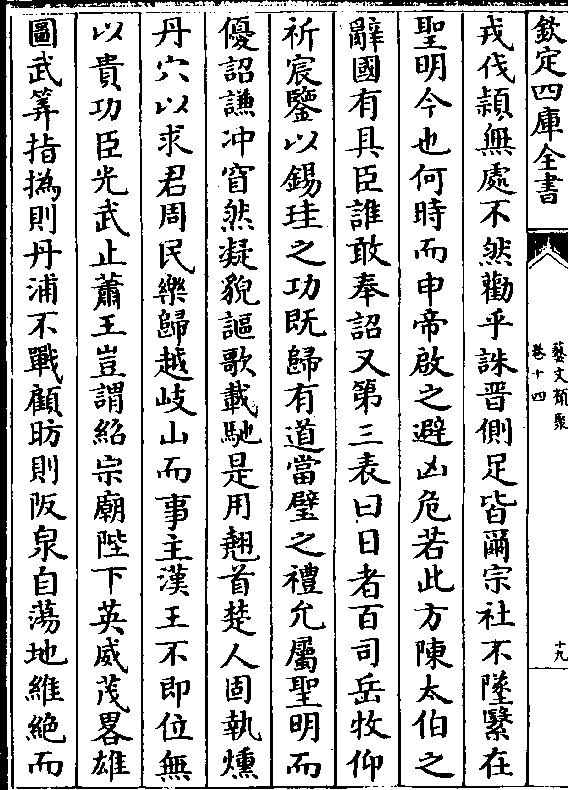 欽定四庫全書
藝文類聚
卷十四
十九
戎伐潁無處不然勸乎誅晋側足皆爾宗社不墜繄在
聖明今也何時而申帝啟之避凶危若此方陳太伯之
辭國有具臣誰敢奉詔又第三表曰日者百司岳牧仰
祈宸鑒以錫珪之功既歸有道當璧之禮允屬聖明而
優詔謙冲窅然凝貌謳歌載馳是用翹首楚人固執燻
丹穴以求君周民樂歸越岐山而事主漢王不即位無
以貴功臣光武止蕭王豈謂紹宗廟陛下英威茂畧雄
圖武筭指撝則丹浦不戰顧眄則阪泉自蕩地維絕而